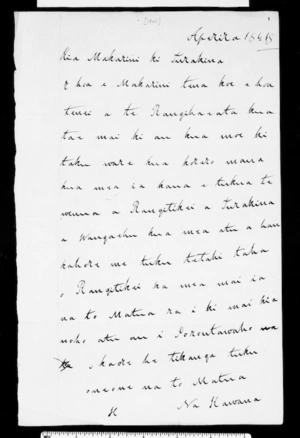 Aperira 1848
Kia Makarini ki Turakina
E hoa e Makarini tena koe e hoa
tenei a te Rangihaeata kua
tae mai ki au kua moe ki
taku ware kua korero maua
kua mea ia kaua e tukua te
wenua a Rangitikei a Turakina
a Wangaehu kua mea atu a hau
kahore me tuku tetahi taha
o Rangitikei ka mea mai ia
na to Matua ra i ki mai kia
noho atu au i Poroutawhao
okaore he tikanga tuku
oneone na to Matua
Na Kawana